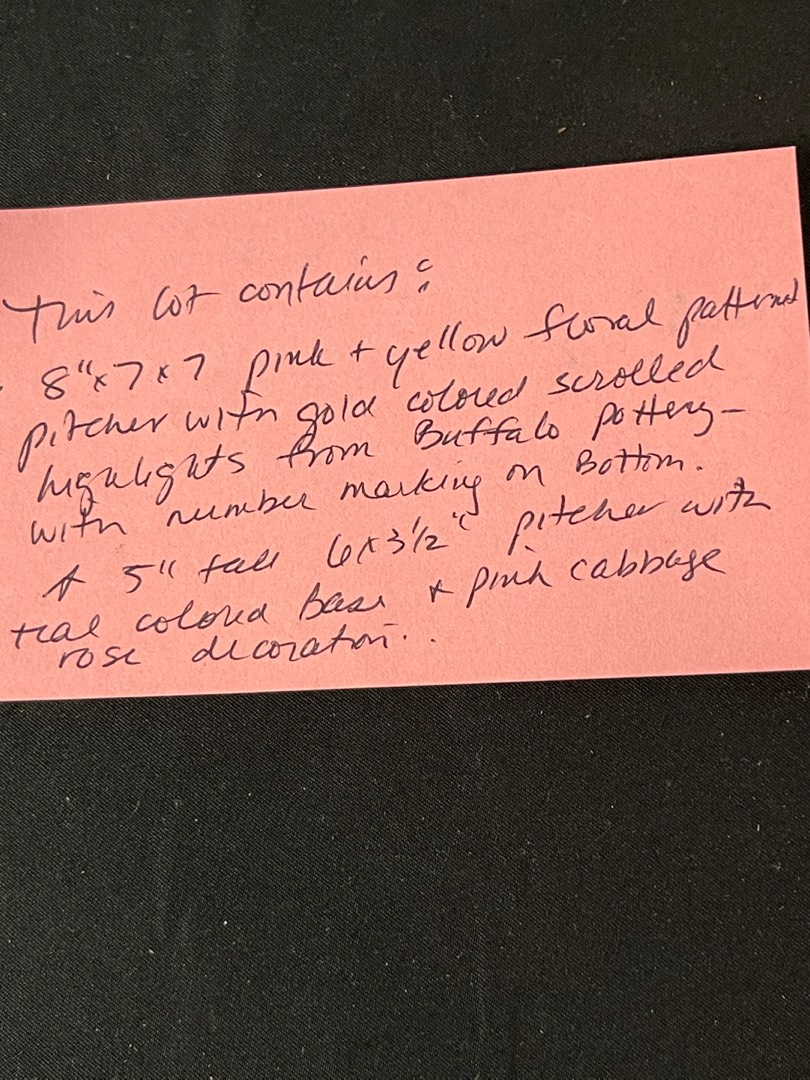 This lot contains:
8"x7x7 pink + yellow floral patterned
pitcher with gold colored scrolled
highlights from Buffalo pottery-
with number marking on Bottom.
A 5" tall 6x3½" pitcher with
teal colored base + pink cabbage
rose decoration..